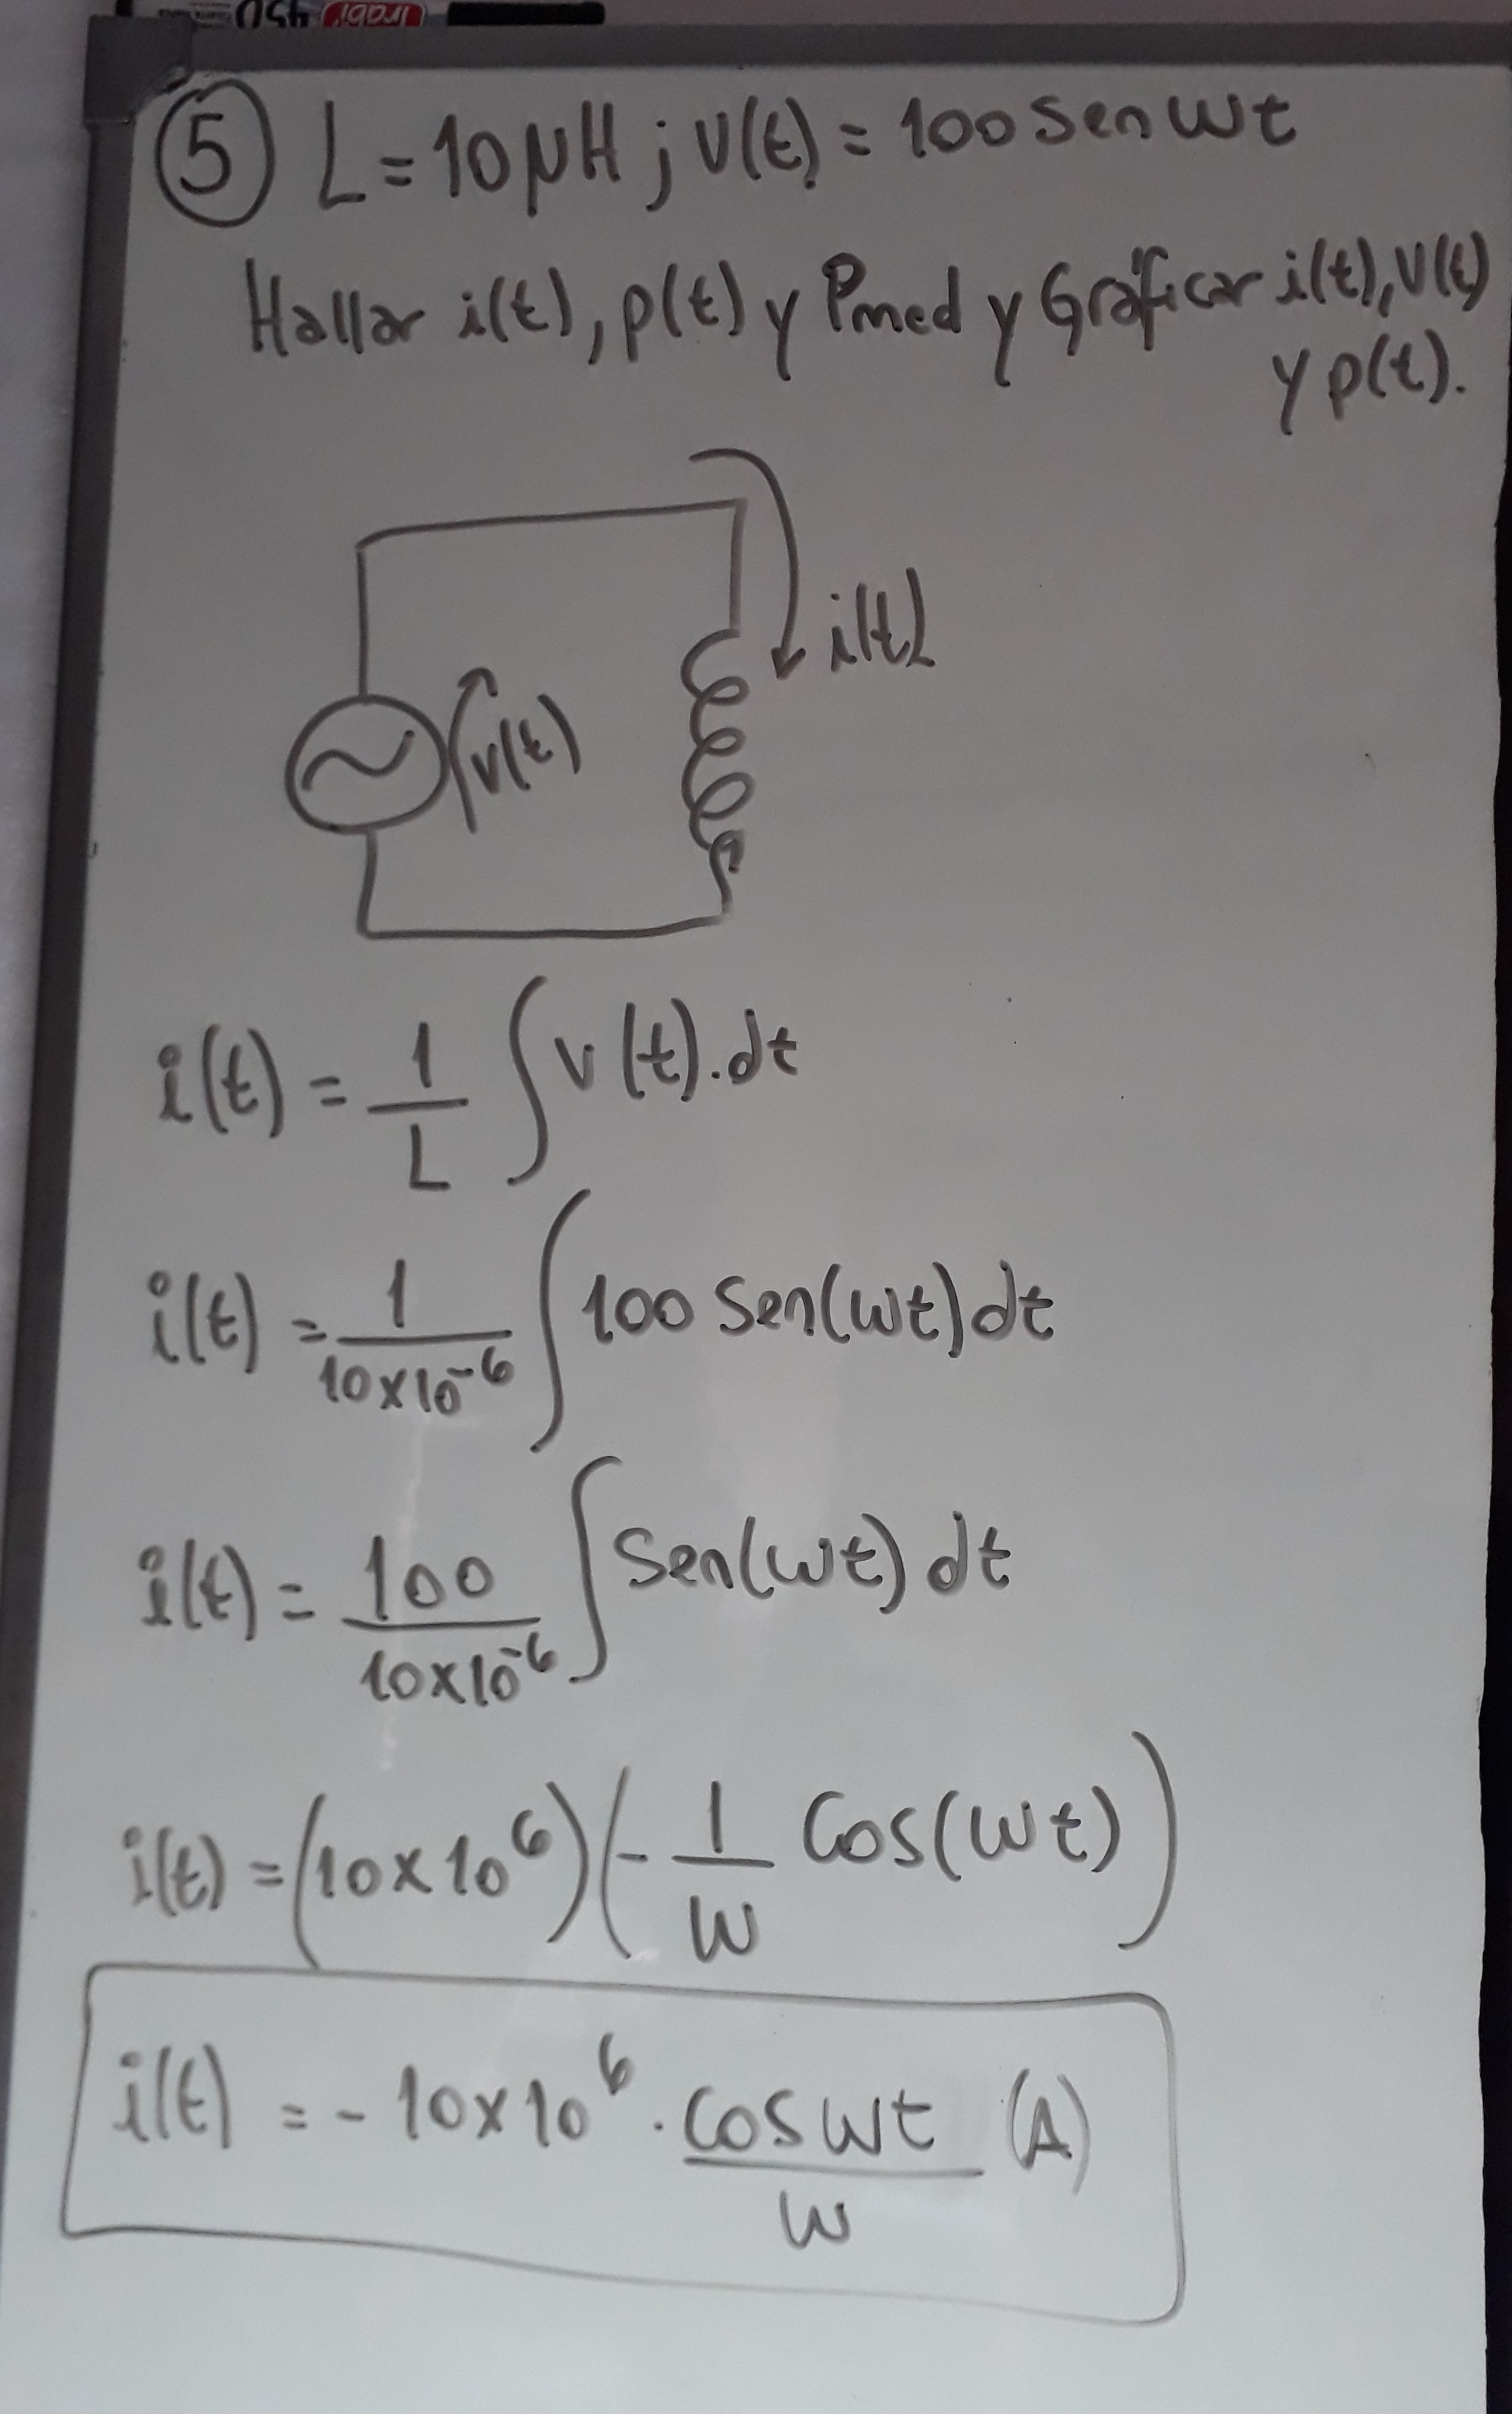 450
⑤ L = 10 μH ; v(t) = 100 Sen wt
Hallar i(t), p(t) y Pmed y Gráficar i(t), v(t)
y p(t).
i(t)
v(t)
i(t) = 1/L ∫ v(t).dt
i(t) = 1/(10x10^-6) ∫ 100 Sen(wt) dt
i(t) = 100/(10x10^-6) ∫ Sen(wt) dt
i(t) = (10x10^6)(- 1/w Cos(wt))
i(t) = - 10x10^6 . cos wt/w (A)